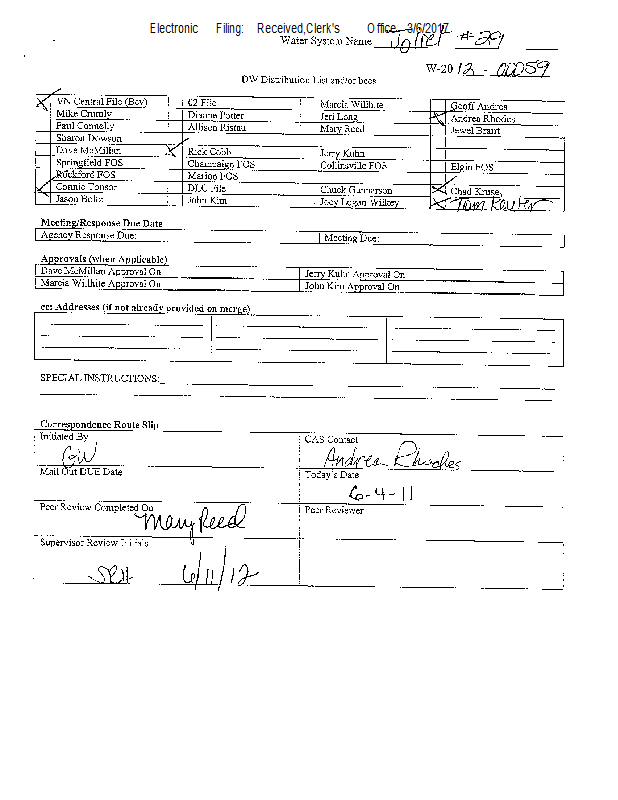 Electronic Filing: Received, Clerk's Office 3/6/2017
Water System Name Joliet #29
W-2012-00059
DW Distribution List and/or bccs
VN Central File (Bev) 62 File Marcia Willhite Geoff Andres
Mike Crumly Dianne Potter Jeri Long Andrea Rhodes
Paul Connelly Allison Ristau Mary Reed Jewel Brant
Sharon Dowson
Dave McMillan Rick Cobb Jerry Kuhn
Springfield FOS Champaign FOS Collinsville FOS Elgin FOS
Rockford FOS Marion FOS
Connie Tonsor DLC File Chuck Gunnerson Chad Kruse,
Jason Boltz John Kim Joey Logan Wilkey Tom Reuter
Meeting/Response Due Date
Agency Response Due: Meeting Due:
Approvals (when Applicable)
Dave McMillan Approval On Jerry Kuhn Approval On
Marcia Willhite Approval On John Kim Approval On
cc: Addresses (if not already provided on merge)
SPECIAL INSTRUCTIONS:
Correspondence Route Slip
Initiated By CAS Contact
Andrea Rhodes
Mail Out DUE Date Today's Date
6-4-11
Peer Review Completed On Peer Reviewer
Mary Reed
Supervisor Review Initials
6/11/12